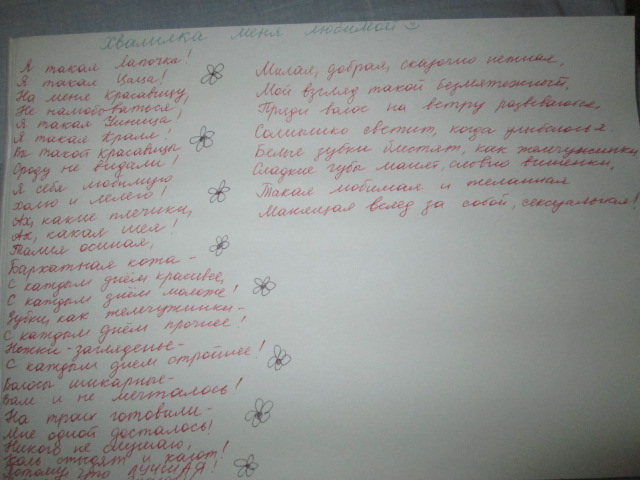 Хвалилка меня любимой
Я такая Лапочка!
Я такая Цаца!
На меня красавицу,
Не налюбоваться!
Я такая Умница!
Я такая Краля!
Вы такой красавицы
Сроду не видали!
Я себя любимую
Холю и лелею!
Ах, какие плечики,
Ах, какая шея!
Талия осиная,
Бархатная кожа -
С каждым днём красивее,
С каждым днём моложе!
Зубки, как жемчужинки -
С каждым днём прочнее!
Ножки - загляденье -
С каждым днем стройнее!
Волосы шикарные -
Вам и не мечталось!
На троих готовили -
Мне одной досталось!
Никого не слушаю,
Коль стыдят и хаят!
Потому что ЛУЧШАЯ!
Милая, добрая, сказочно нежная,
Мой взгляд такой безмятежный,
Пряди волос на ветру развеваются,
Солнышко светит, когда улыбаюсь я.
Белые зубки блестят, как жемчужинки
Сладкие губы манят, словно вишенки,
Такая любимая и желанная
Манящая вслед за собой, сексуальная!